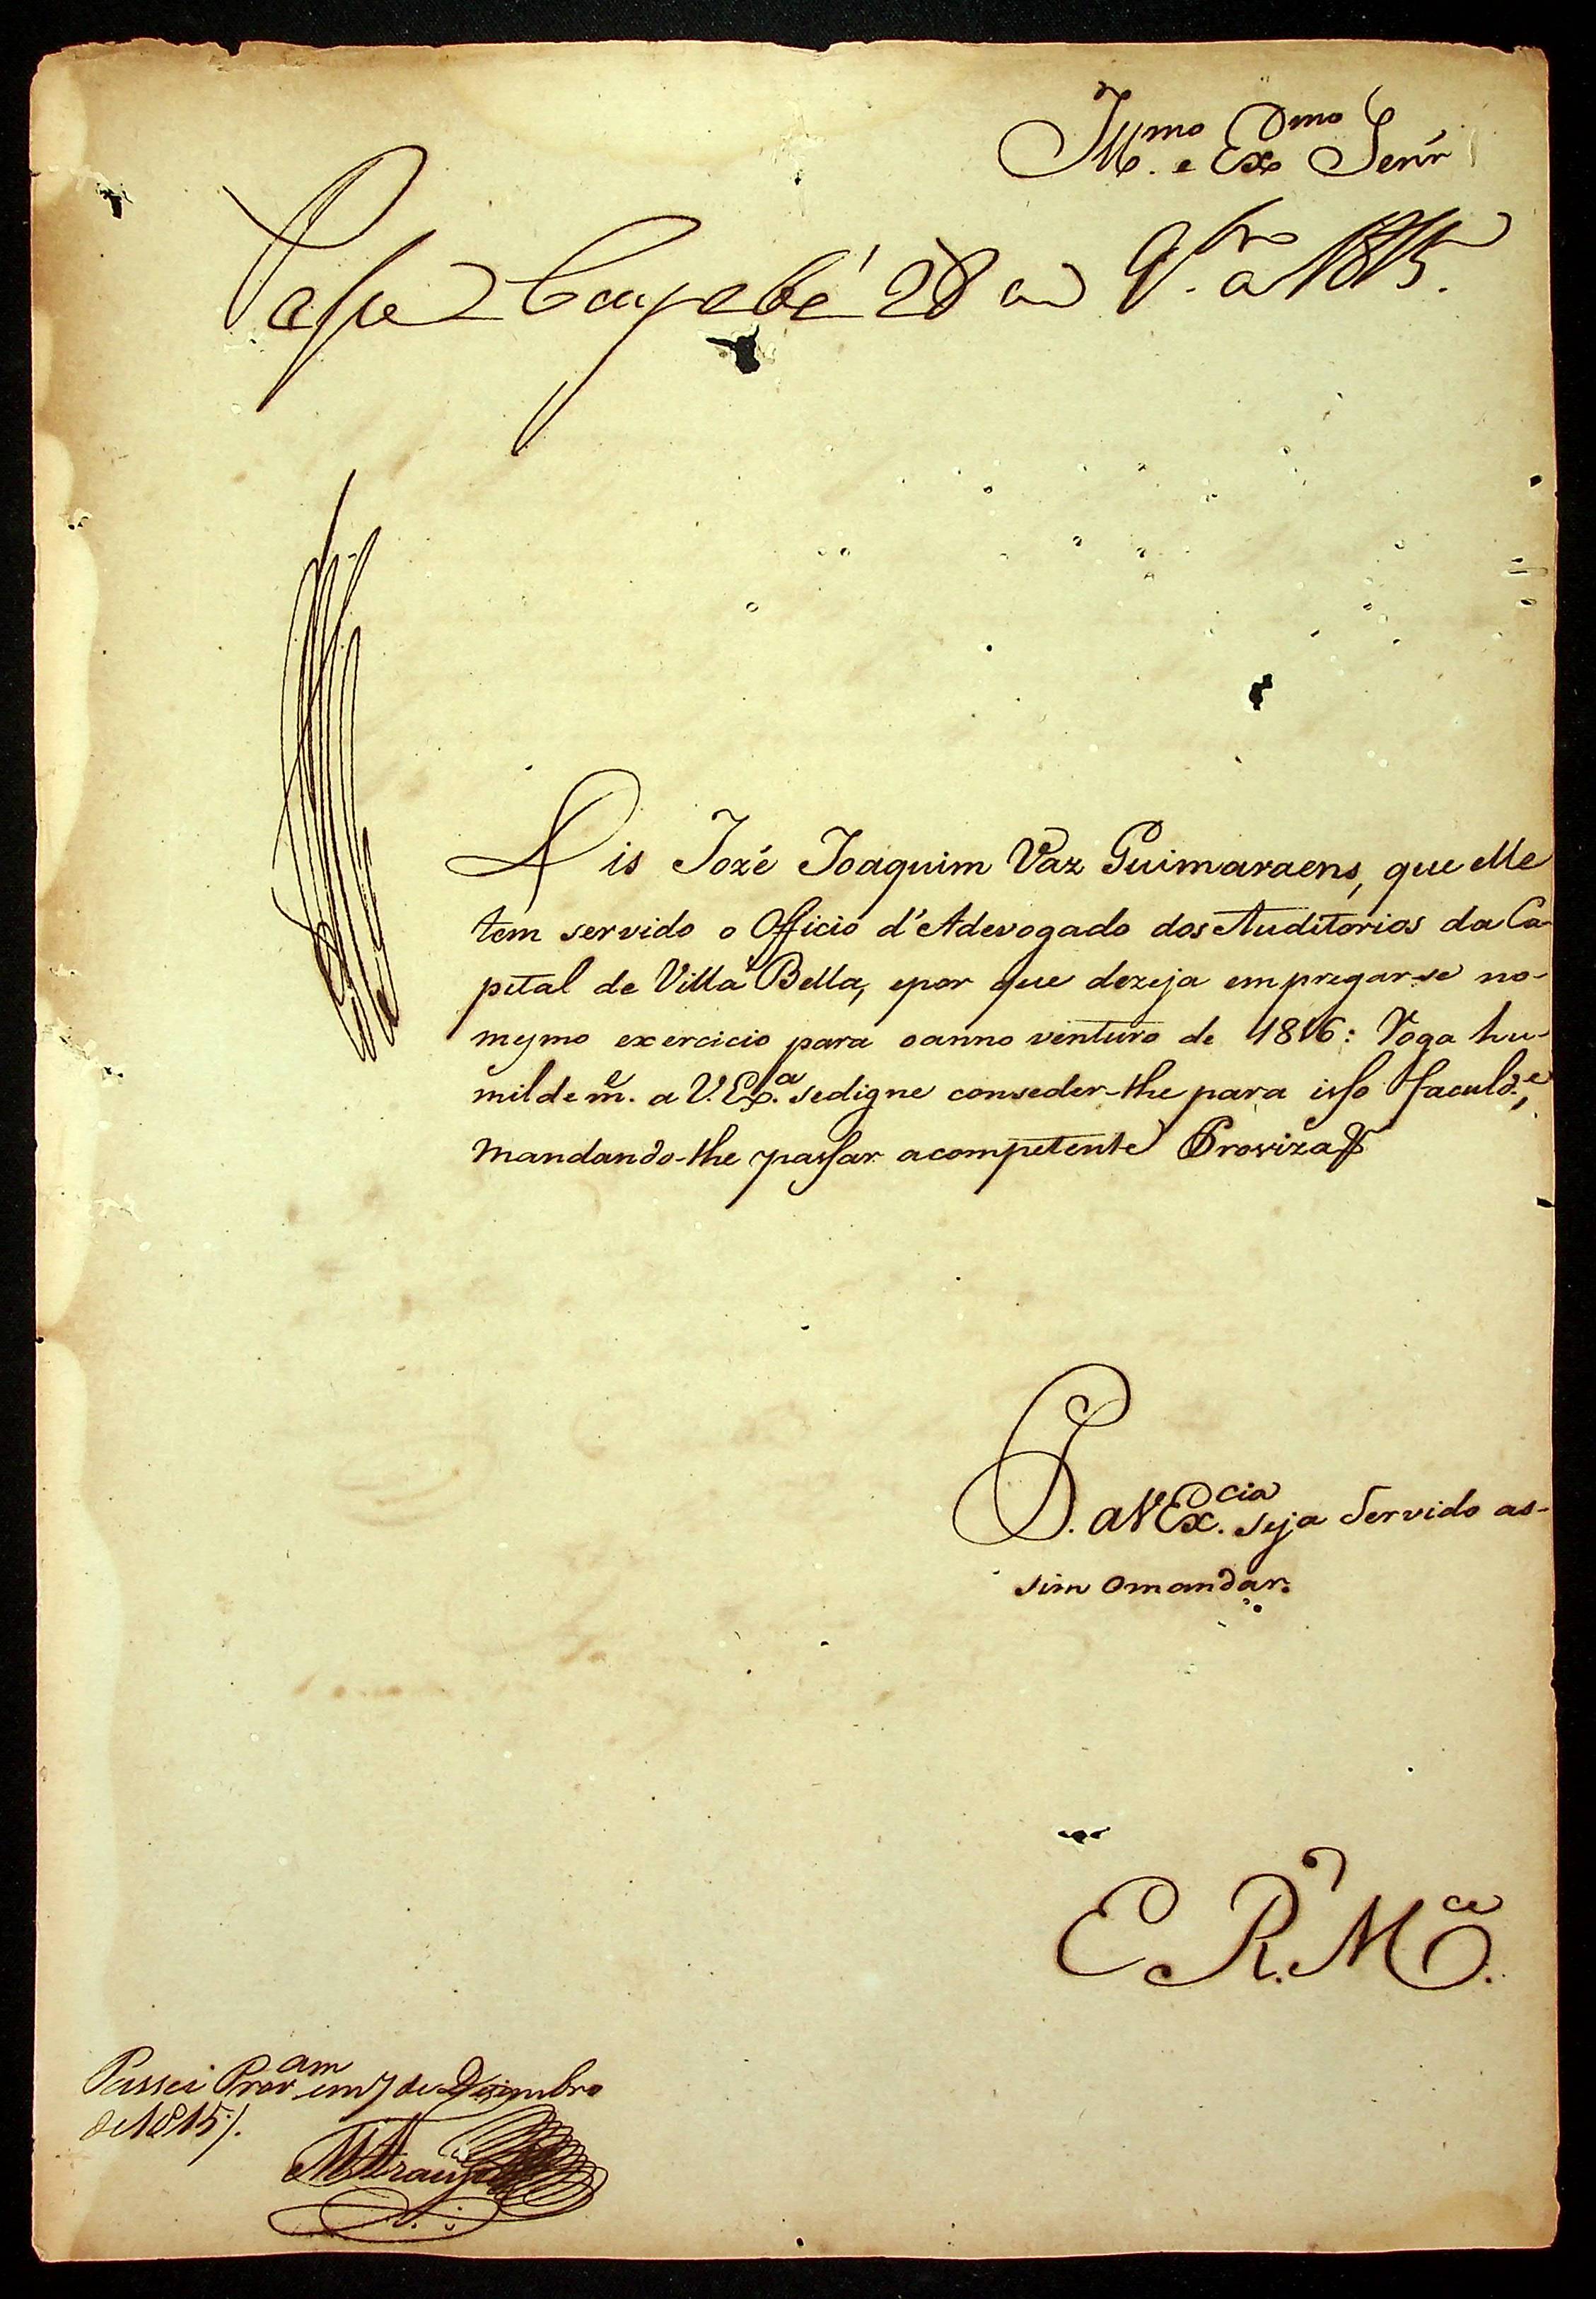 Ill.mo e Ex.mo Senr̃
Passe Cuyabá 28 de 9.bro de 1815.
Dis Jozé Joaquim Vaz Guimaraens, que elle
tem servido o Officio d'Adevogado dos Auditorios da Ca-
pital de Villa Bella, epor que dezeja empregar-se no-
mesmo exercicio para oanno venturo de 1816: Roga hu-
mildem.e a V. Ex.a sedigne conseder-lhe para isso faculd.e,
mandando-lhe passar acompetente Provizaõ
P. a V Ex.cia seja Servido as-
sim omandar.
E. R. M.ce
Passei Prov.am em 7 de Dezembro
de 1815 /.